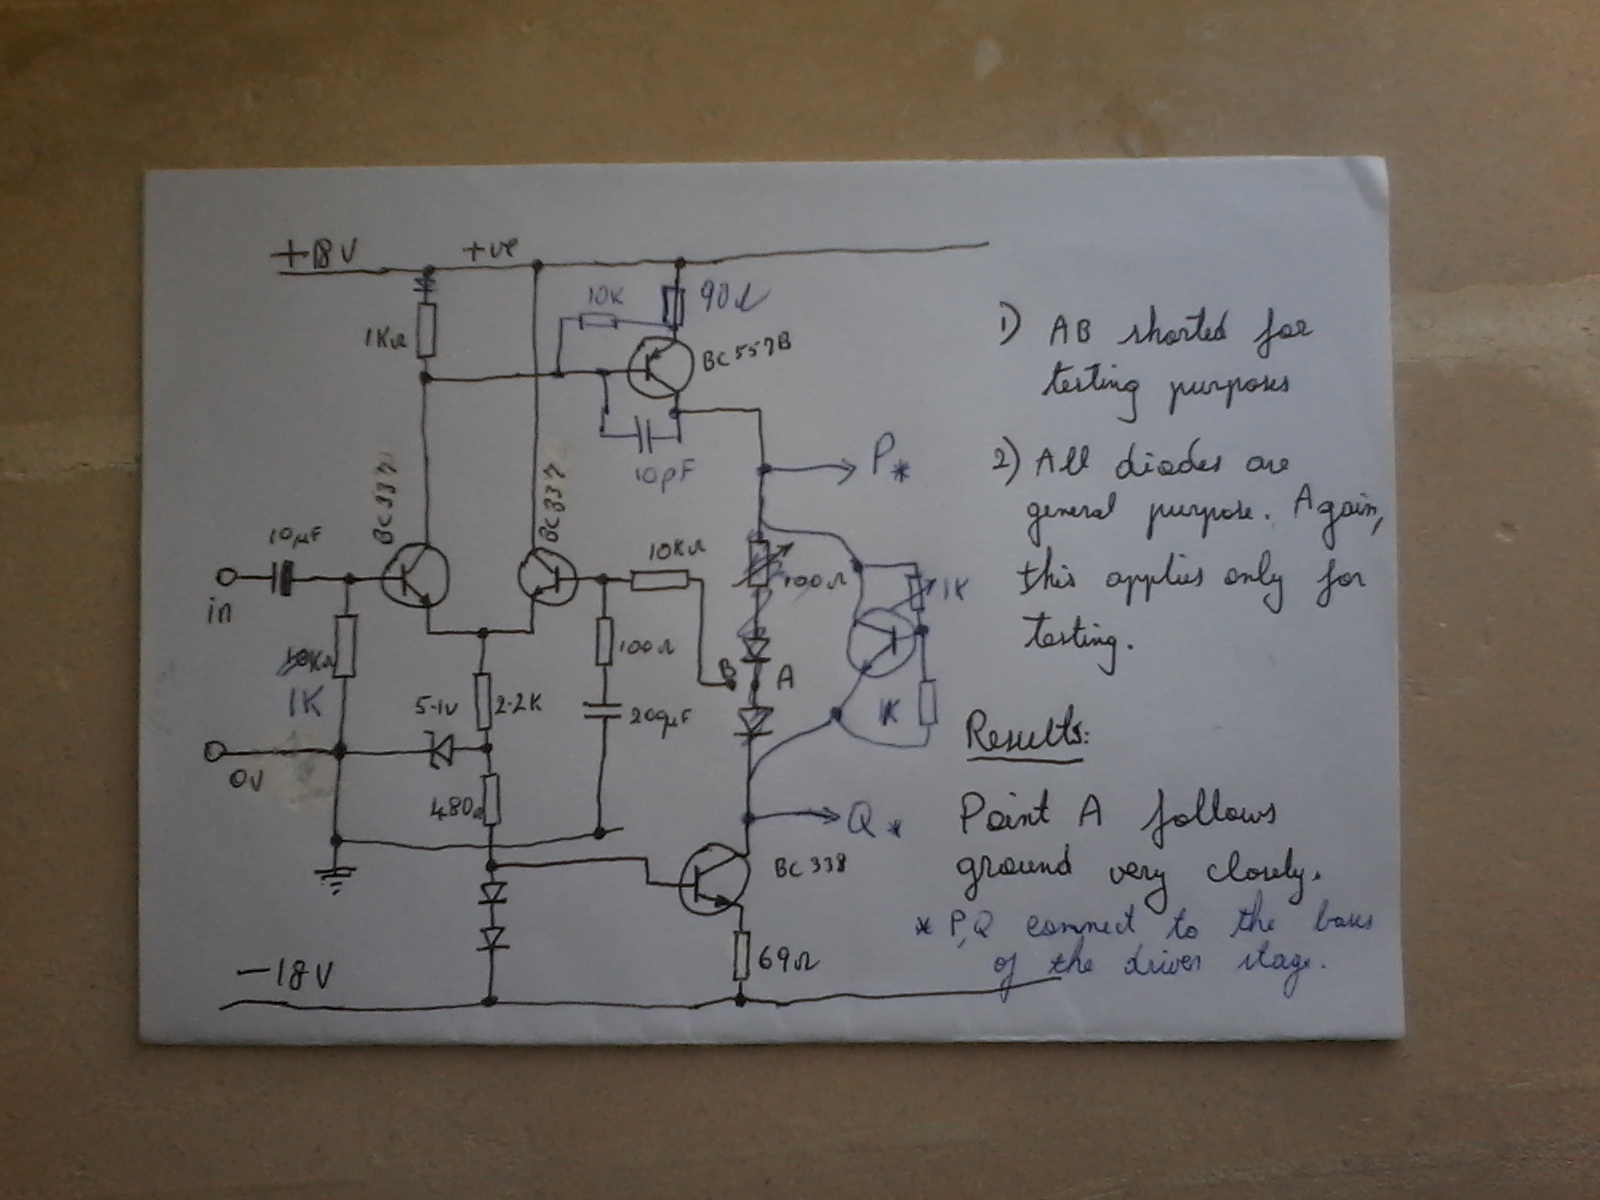 +18V
+ve
10K
90Ω
1KΩ
BC557B
10pF
P*
BC337
BC337
10μF
in
10KΩ
100Ω
1K
10KΩ
1K
100Ω
B
A
5.1V
2.2K
200μF
1K
0V
480Ω
Q*
BC 338
69Ω
-18V
1) AB shorted for
testing purposes
2) All diodes are
general purpose. Again,
this applies only for
testing.
Results:
Point A follows
ground very closely.
* P,Q connect to the bases
of the driver stage.